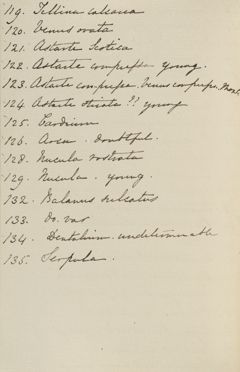 119. Tellina calcarea
120. Venus ovata
121. Astarte Scotica
122. Astarte compressa young.
123. Astarte compressa. Venus compressa Mont.
124. Astarte striata?? young
125. Cardium
126. Arca. doubtful.
128. Nucula rostrata
129. Nucula. young.
132. Balanus sulcatus
133. Do. var
134. Dentalium. undeterminable
135. Serpula.